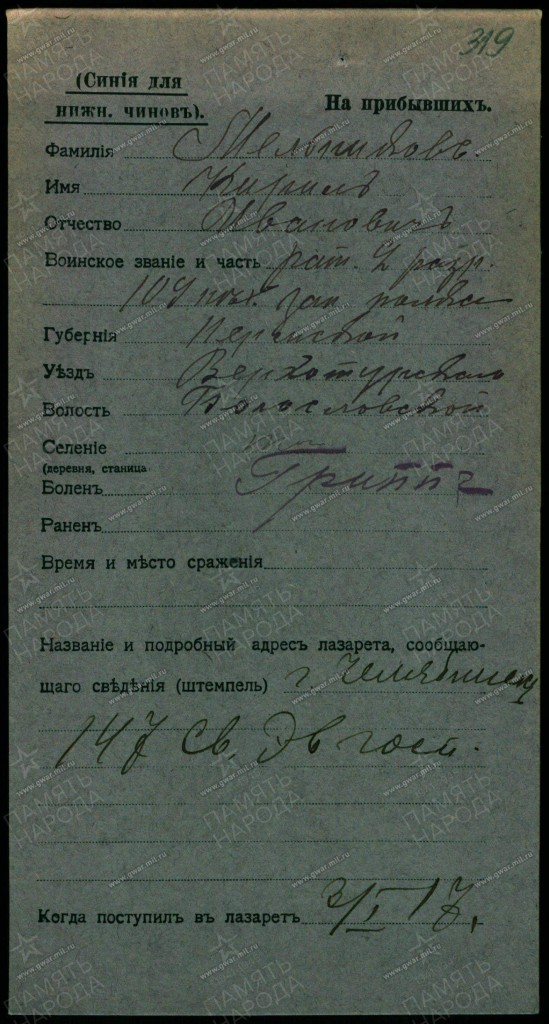 319
(Синія для
нижн. чиновъ).
На прибывшихъ.
Фамилія Мельниковъ.
Имя Кирилъ
Отчество Ивановичъ
Воинское званіе и часть рат. 2 разр.
109 пѣх. зап. полка
Губернія Пермской
Уѣздъ Верхотурскаго
Волость Богословской
Селеніе
(деревня, станица
Боленъ Гриппъ
Раненъ
Время и мѣсто сраженія
Названіе и подробный адресъ лазарета, сообщаю-
щаго свѣдѣнія (штемпель) г. Челябинскъ
147 Св. Эв. госп.
Когда поступилъ въ лазаретъ 3/I 17.